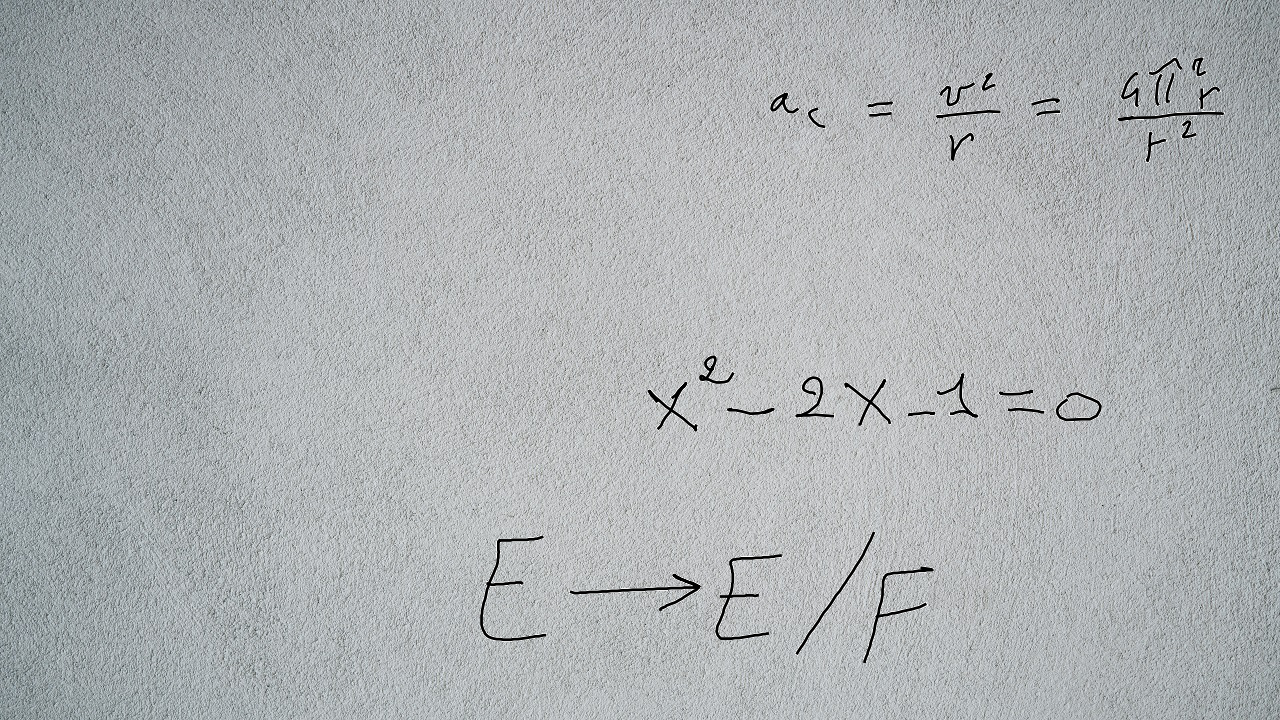 a_c = v²/r = 4π²r/r²
x² - 2x - 1 = 0
E → E/F